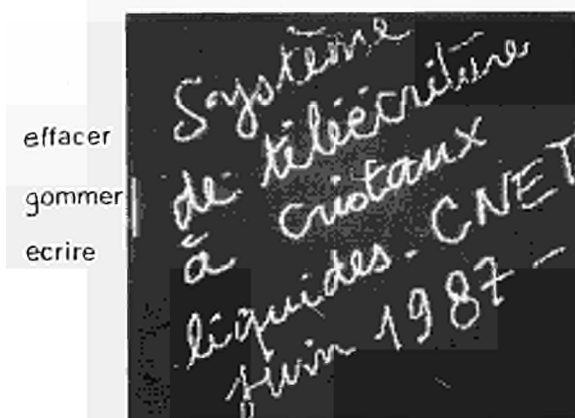 effacer
gommer
ecrire
Système
de téléécriture
à cristaux
liquides - CNET
Juin 1987 -